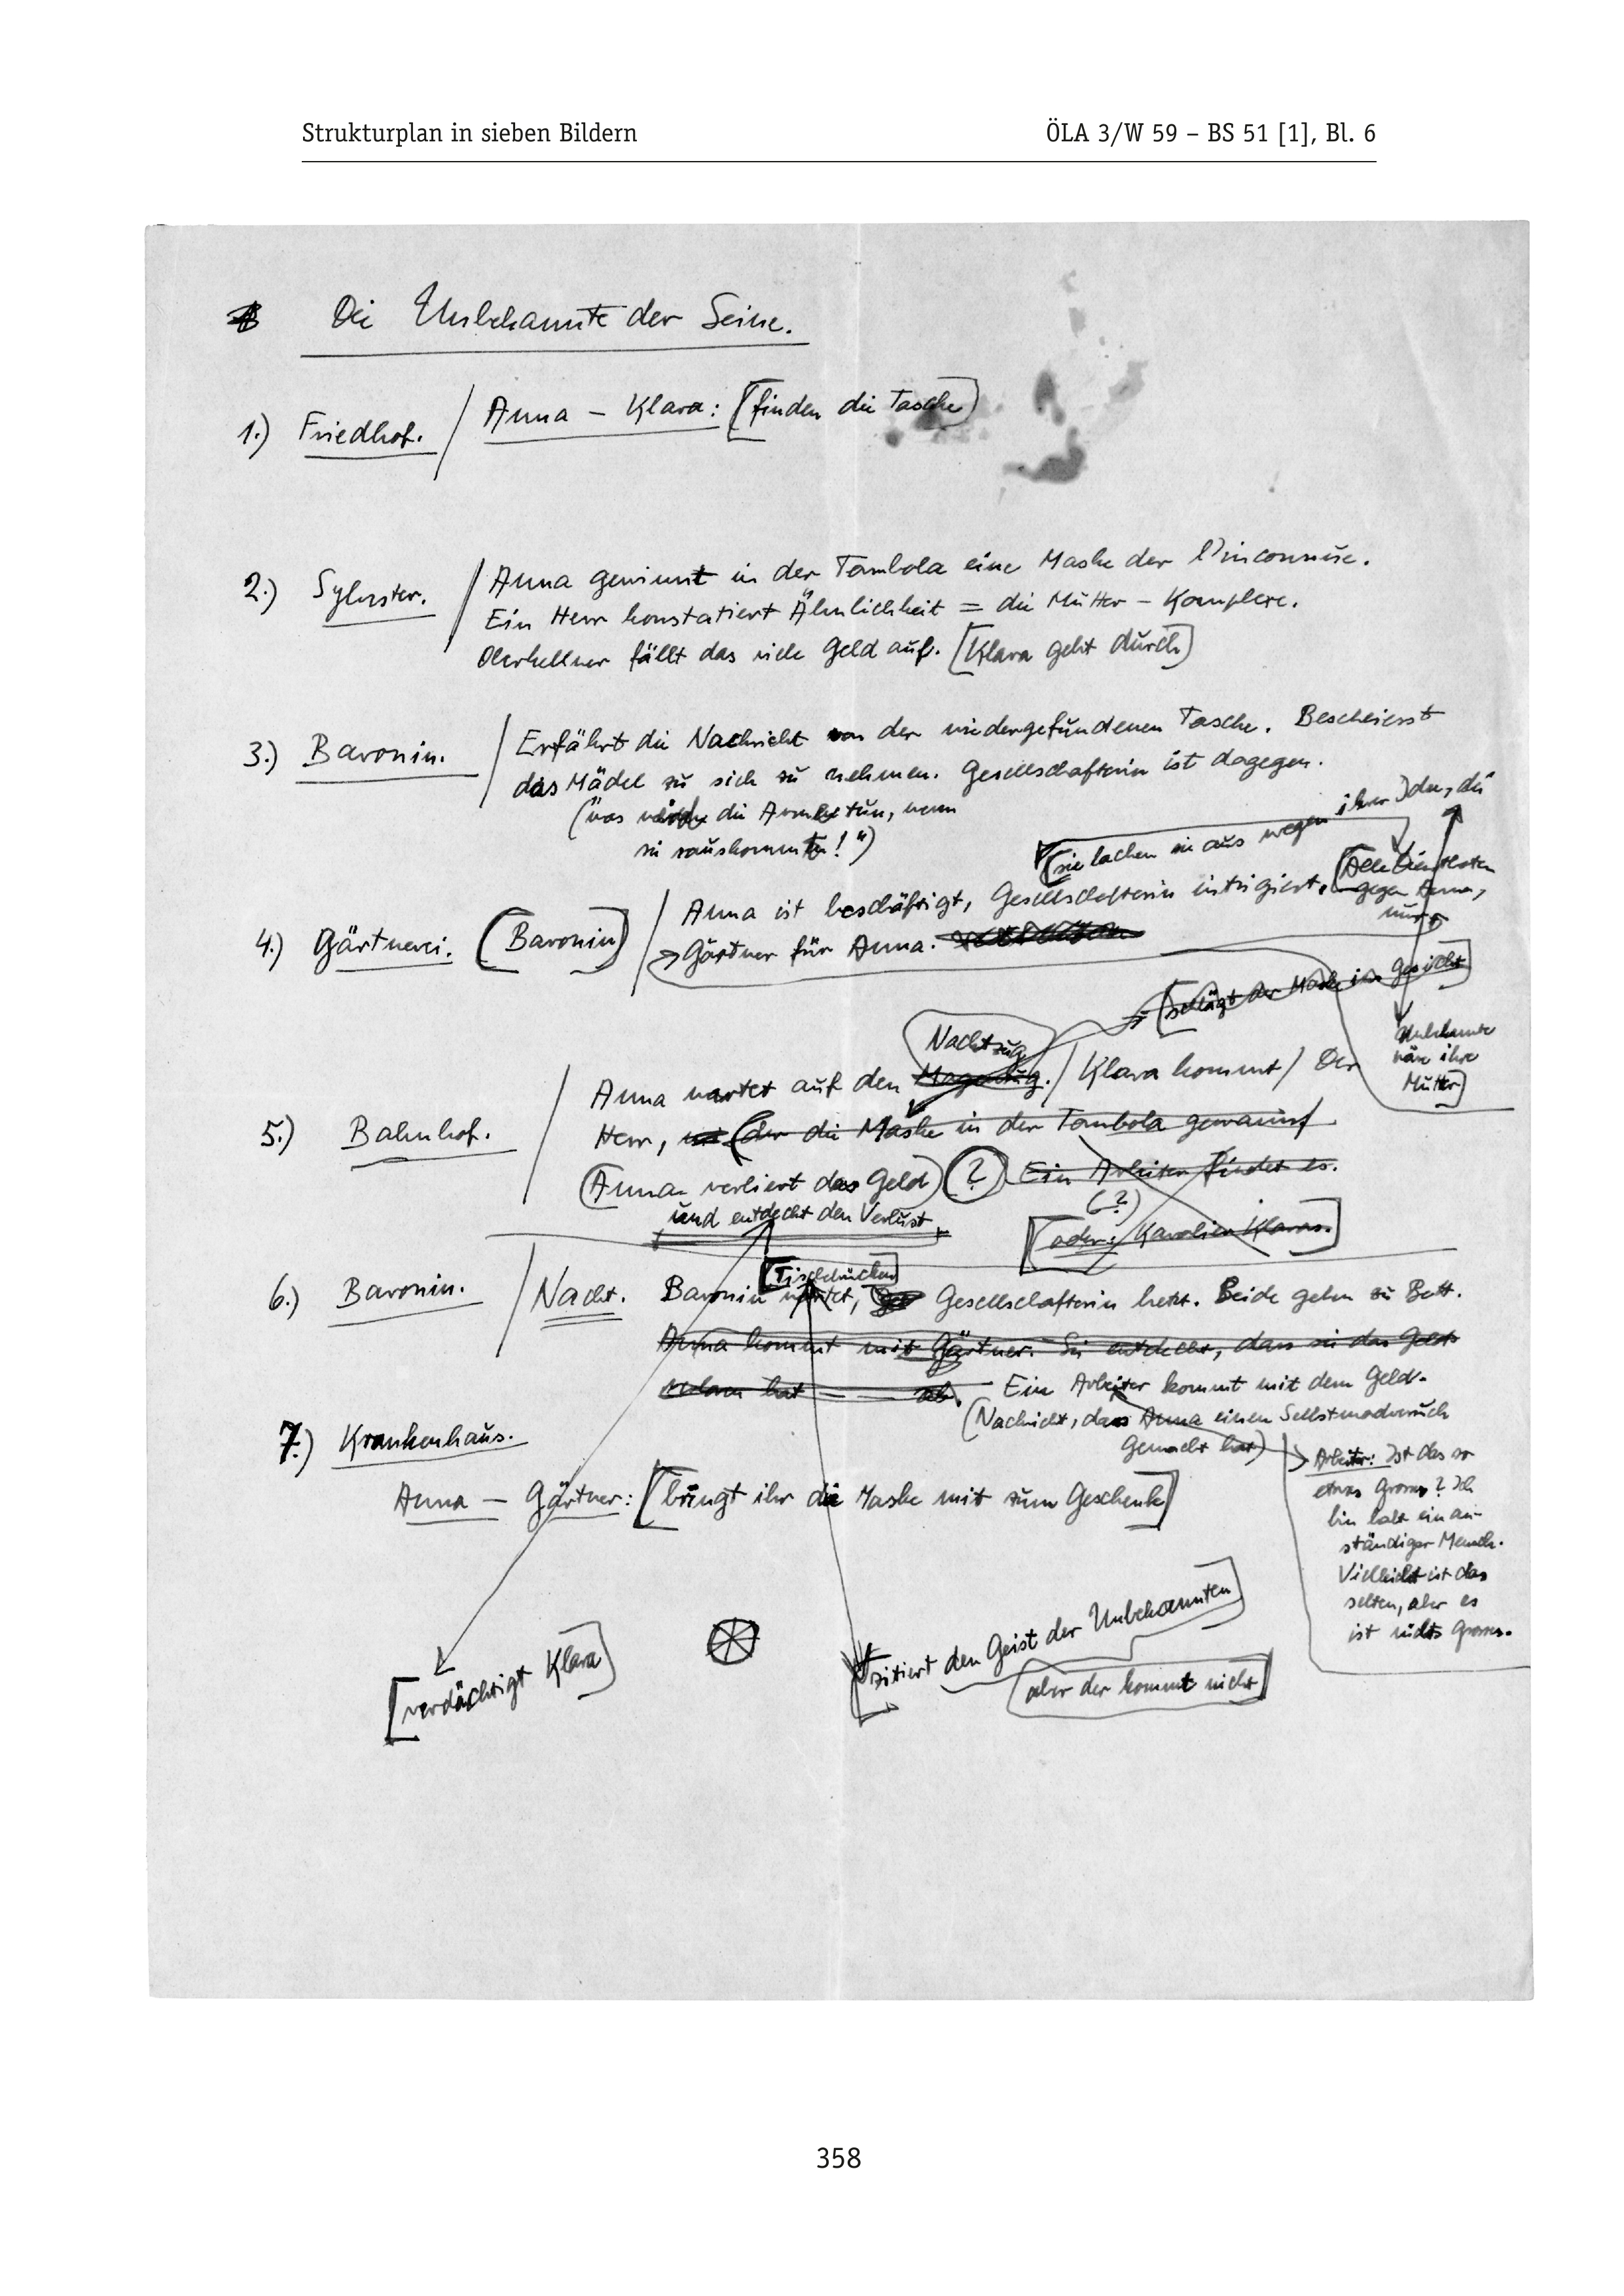 Strukturplan in sieben Bildern
ÖLA 3/W 59 – BS 51 [1], Bl. 6
Die Unbekannte der Seine.
1.) Friedhof. / Anna – Klara: [finden die Tasche]
2.) Sylvester. / Anna gewinnt in der Tombola eine Maske der l'inconnue.
Ein Herr konstatiert Ähnlichkeit = die Mutter – Komplexe.
Oberkellner fällt das viele Geld auf. [Klara geht durch]
3.) Baronin. / Erfährt die Nachricht von der wiedergefundenen Tasche. Beschliesst
das Mädel zu sich zu nehmen. Gesellschafterin ist dagegen.
(was würde die Armee tun, wenn
sie rauskommt!")
[sie lachen sie aus wegen ihrer Idee, die
Unbekannte
wäre ihre
Mutter]
4.) Gärtnerei. (Baronin) / Anna ist beschäftigt, Gesellschafterin intrigiert. [Alle Dienstboten
gegen Anna,
nur
Gärtner für Anna.
[schlägt der Maske ins Gesicht]
Nachtzug
5.) Bahnhof. / Anna wartet auf den Morgenzug. / Klara kommt / Der
Herr, (der die Maske in der Tombola gewann
(Anna verliert das Geld) (?) Ein Arbeiter findet es.
und entdeckt den Verlust
(?)
[oder: Kavalier Klaras.]
[Tischrücken]
6.) Baronin. / Nacht. Baronin wartet, Gesellschafterin hetzt. Beide gehen zu Bett.
Anna kommt mit Gärtner. Sie entdeckt, dass sie das Geld
verloren hat ab. Ein Arbeiter kommt mit dem Geld.
(Nachricht, dass Anna einen Selbstmordversuch
gemacht hat)
Arbeiter: Ist das so
etwas Grosses? Ich
bin halt ein an-
ständiger Mensch.
Vielleicht ist das
selten, aber es
ist nichts Grosses.
7.) Krankenhaus.
Anna – Gärtner: [bringt ihr die Maske mit zum Geschenk]
[verdächtigt Klara]
[zitiert den Geist der Unbekannten]
[aber der kommt nicht]
358